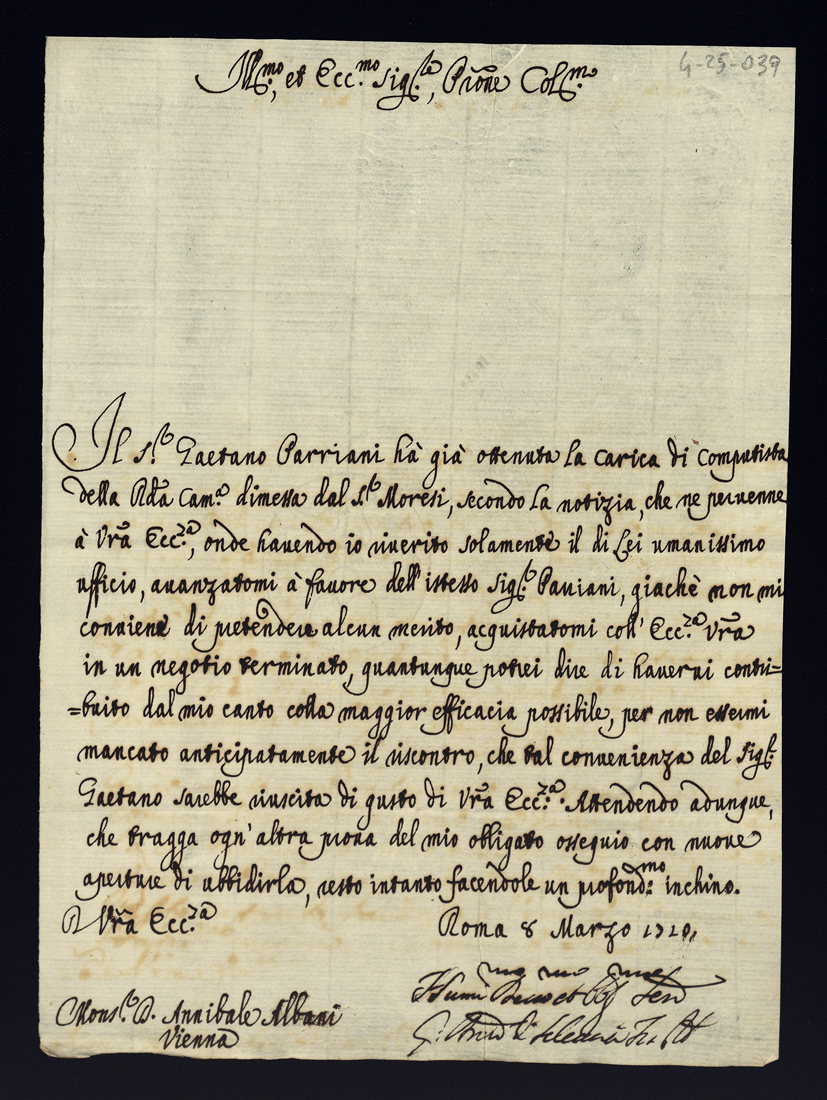 4-25-039
Ill.mo, et Ecc.mo Sig.re, Prone Col.mo
Il S.r Gaetano Parriani hà già ottenuta la carica di Computista
della Rda Cam.a dimessa dal S.r Moresi, secondo la notizia, che ne peruenne
à Vra Ecc.za, onde hauendo io riuerito solamente il di Lei umanissimo
ufficio, auanzatomi à fauore dell'istesso Sig.r Pauiani, giachè non mi
conuiene di pretendere alcun merito, acquistatomi coll'Ecc.za Vra
in un negotio terminato, quantunque potrei dire di hauerui contri=
=buito dal mio canto colla maggior efficacia possibile, per non essermi
mancato anticipatamente il riscontro, che tal conuenienza del Sig.r
Gaetano sarebbe riuscita di gusto di Vra Ecc.za. Attendendo adunque,
che tragga ogn'altra proua del mio obligato ossequio con nuoue
aperture di ubbidirla, resto intanto facendole un profond.mo inchino.
D Vra Ecc.za
Roma 8 Marzo 1710,
Mons.r D. Annibale Albani
Vienna